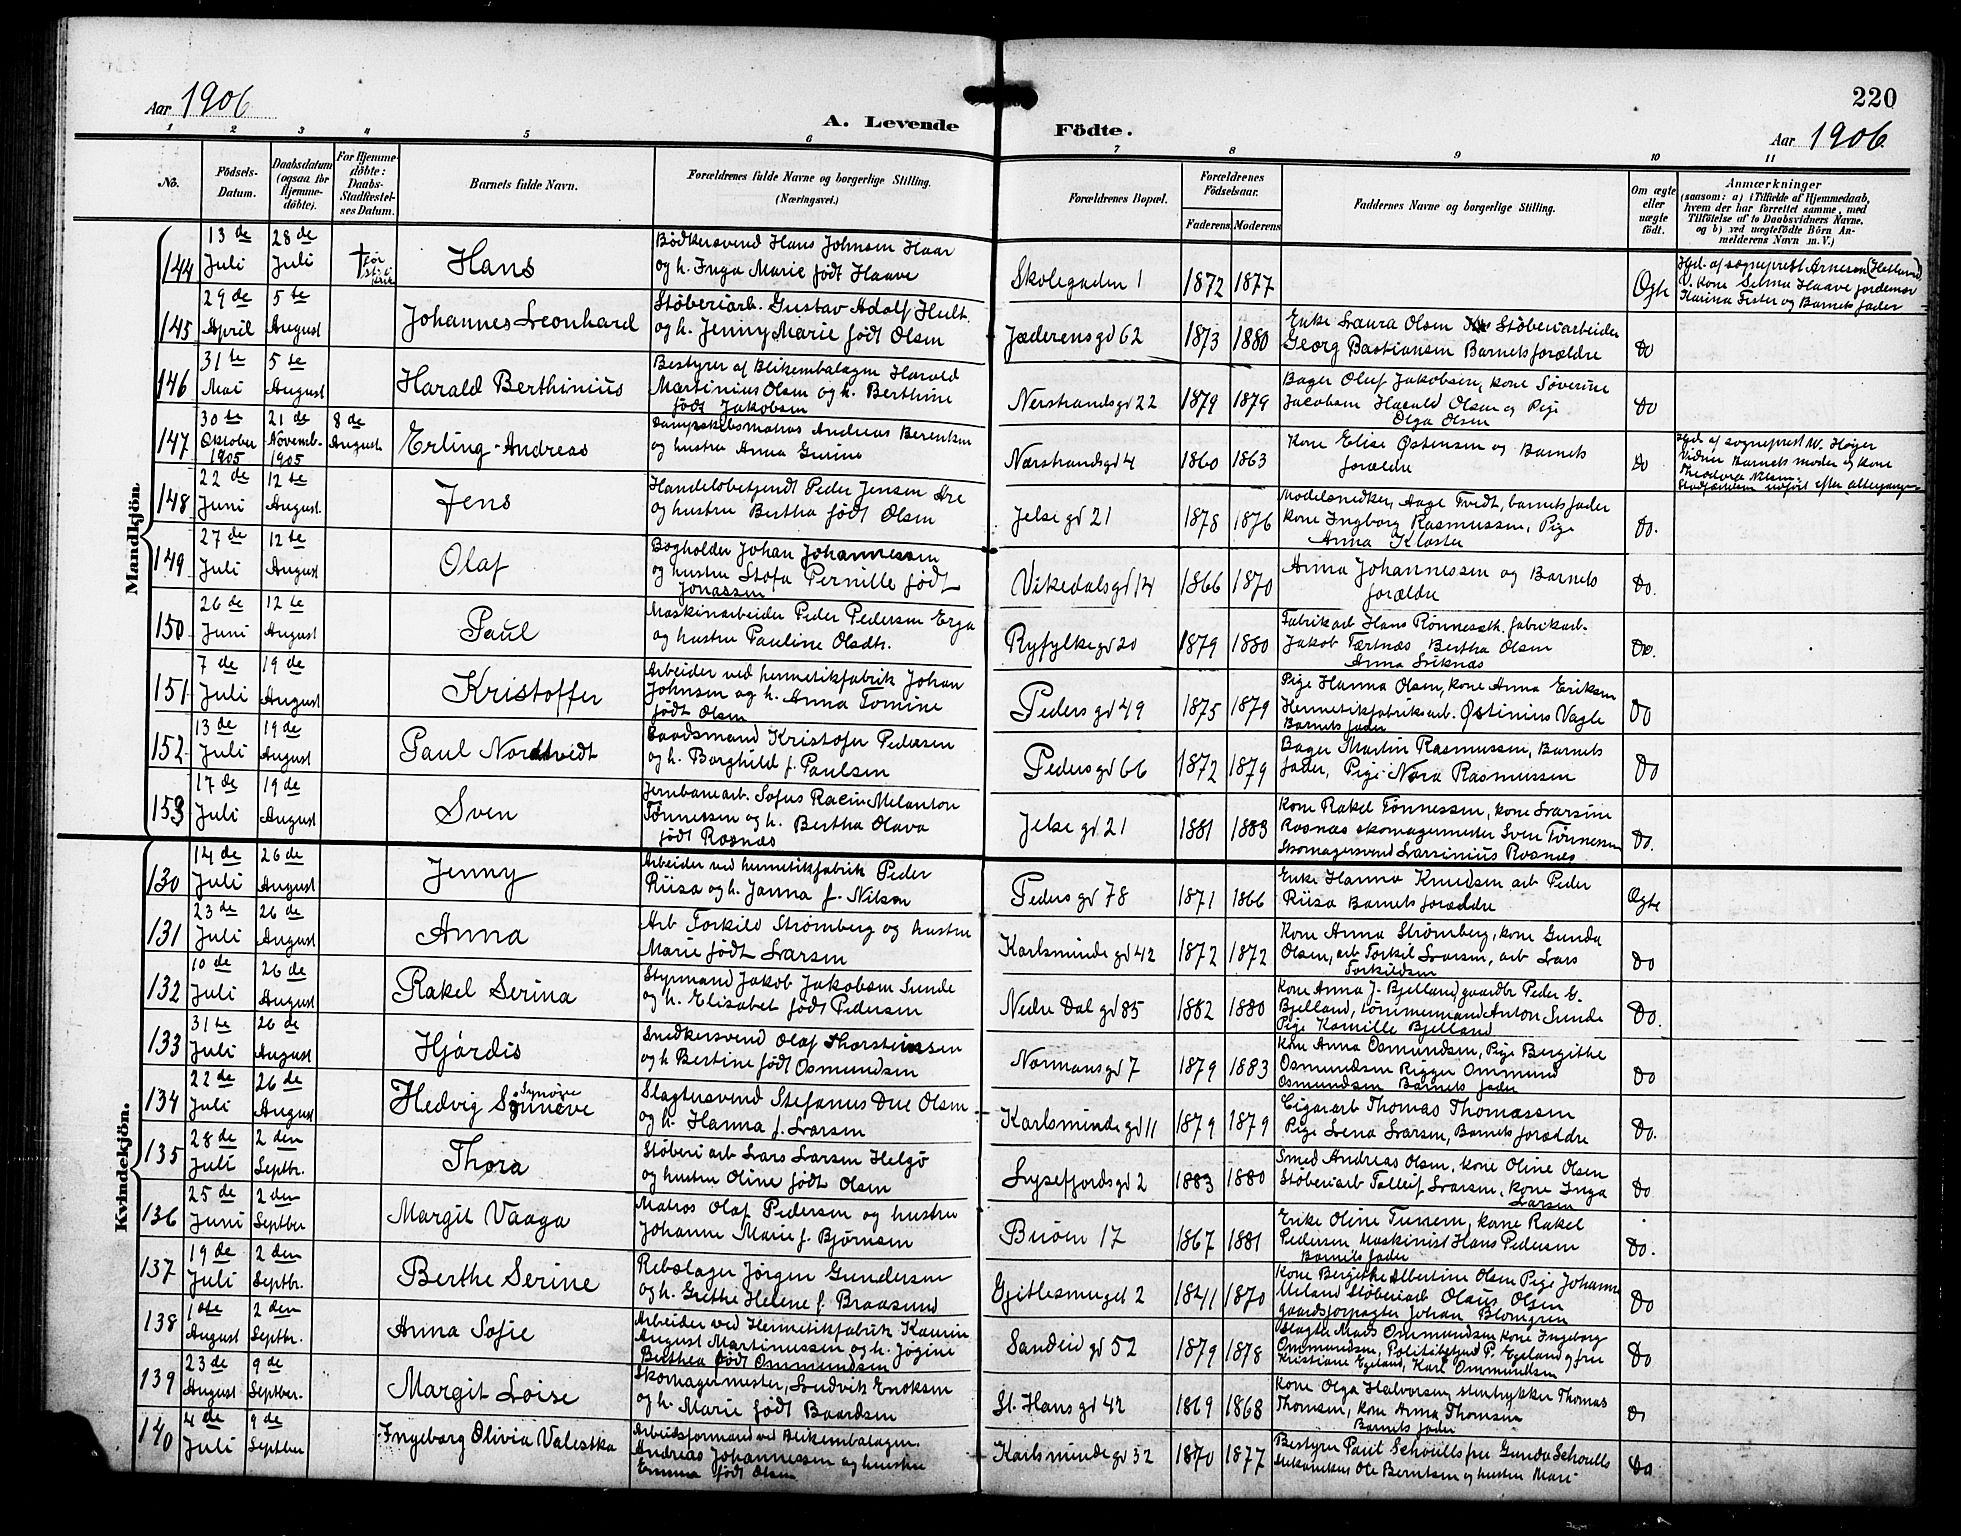 220
Aar 1906
A. Levende
Födte.
Aar 1906
1 2 3 4 5 6 7 8 9 10 11
No.
Födsels-
Datum.
Daabsdatum
(ogsaa for
Hjemme-
döbte).
For Hjemme-
döbte:
Daabs-
Stadfæstel-
ses Datum.
Barnets fulde Navn.
Forældrenes fulde Navne og borgerlige Stilling.
(Næringsvei.)
Forældrenes Bopæl.
Forældrenes
Födselsaar.
Faderens Moderens
Faddernes Navne og borgerlige Stilling.
Om ægte
eller
uægte
födt.
Anmærkninger
(saasom: a) i Tilfælde af Hjemmedaab,
hvem der har forrettet samme, med
Tilföielse af to Daabsvidners Navne,
og b) ved uægtefödte Börn An-
melderens Navn m. V.)
Mandkjön
144
13 de
Juli
28 de
Juli
Hans
Bödkersvend Hans Johnsen Haar
og h. Inga Marie født Haave
Skolegaden 1
1872 1877
Ogte
Hjd. af sogneprest Arnesen (Hetland)
V. kone Selma Haave jordemor
Karina Fister og Barnets fader
145
29 de
April
5 te
August
Johannes Leonhard
Støberiarb. Gustav Adolf Hult
og h. Jenny Marie født Olsen
Jæderensgd 62
1873 1880
Enke Laura Olsen Støberiarbeider
Georg Bastiansen Barnets forældre
Do
146
31 te
Mai
5 te
August
Harald Berthinius
Bestyrer af Blikemballagen Harald
Martinius Olsen og h. Berthine
født Jakobsen
Nerstrandsgd 22
1879 1879
Bager Oluf Jakobsen, kone Søverine
Jacobsen Harald Olsen og Pige
Olga Olsen
Do
147
30 te
Oktober
1905
21 de
Novemb.
1905
8 de
August
Erling Andreas
Dampskibsmatros Andreas Berentsen
og hustru Anna Gurine
Nærstrandsgd 4
1860 1863
Kone Elise Østensen og Barnets
forældre
Do
Hjd. af sogneprest W. Høyer
Vidner Barnets moder og kone
Theodora Nilsen.
148
22 de
Juni
12 te
August.
Jens
Handelsbetjendt Peder Jensen Are
og hustru Bertha født Olsen
Jelse gd 21
1878 1876
Modelsnedker, Aage Tvedt, barnets fader
kone Ingborg Rasmussen, Pige
Anna Kloster
Do.
149
27 de
Juli
12 te
August
Olaf
Bogholder Johan Johannessen
og hustru Stofa Pernille født
Jonassen
Vikedalsgd 14
1866 1870
Anna Johannessen og Barnets
forældre
Do.
150
26 de
Juni
12 te
August
Paul
Maskinarbeider Peder Pedersen Erga
og hustru Pauline Olsdtr.
Ryfylkegd 20
1879 1880
Fabrikarb Hans Rønneseth. fabrikarb.
Jakob Tærtnæs Bertha Olsen
Anna
Do.
151
7 de
Juli
19 de
August
Kristoffer
Arbeider ved hermetikfabrik Johan
Johnsen og h. Anna Tomine
født Olsen
Pedersgd 49
1875 1879
Pige Hanna Olsen, kone Anna Eriksen
Hermetikfabriksarb. Østinius Vagle
Barnets fader
Do
152
13 de
Juli
19 de
August
Paul Nordtvedt
Baadsmand Kristofer Pedersen
og h. Borghild f. Paulsen
Pedersgd 66
1872 1879
Bager Martin Rasmussen, Barnets
fader, Pige Nora Rasmussen
Do
153
17 de
Juli
19 de
August
Sven
Jernbanearb. Sofus Racin Melanton
Tønnessen og h. Bertha Olava
født Rosnæs
Jelse gd 21
1881 1883
Kone Rakel Tønnessen, kone Larsine
Rosnæs skomagermester Sven Tønnessen
Skomagersvend Larsinius Rosnæs.
Do.
Kvindekjön.
130
14 de
Juli
26 de
August
Jenny
Arbeider ved hermetikfabrik Peder
Riisa og h. Janna f. Nilsen
Pedersgd 78
1871 1866
Enke Hanna Knudsen arb Peder
Riisa Barnets forældre
Ogte
131
23 de
Juli
26 de
August
Anna
Arb Torkild Strømberg og hustru
Marie født Larsen
Karlsmindegd 42
1872 1872
Kone Anna Strømberg, kone Gunda
Olsen, arb Torkil Larsen, arb Lars
Torkildsen
Do
132
10 de
Juli
26 de
August
Rakel Serina
Styrmand Jakob Jakobsen Sunde
og h. Elisabet født Pedersen
Nedre Dalgd 85
1882 1880
Kone Anna J. Bjelland gaardbr Peder E.
Bjelland, tømmermand Anton Sunde
Pige Kamille Bjelland
Do.
133
31 te
Juli
26 de
August
Hjördis
Snedkersvend Olaf Thorsteinsen
og h. Bertine født Osmundsen
Normansgd 7
1879 1883
Kone Anna Osmundsen, Pige Bergithe
Osmundsen Rigger Ommund
Osmundsen Barnets fader
Do
134
22 de
Juli
26 de
August
Synøve
Hedvig Sønneve
Slagtersvend Stefanus Due Olsen
og h. Hanna f. Larsen
Karlsmindegd 11
1879 1879
Cigararb Thomas Thomassen
Pige Lena Larsen, Barnets forældre
Do.
135
28 de
Juli
2 den
Septbr.
Thora
Støberiarb Lars Larsen Helgø
og hustru Oline født Olsen
Lysefjordsgd 2
1883 1880
Smed Andreas Olsen, kone Oline Olsen
Støberiarb Tolleif Larsen, kone Inga
Larsen
Do
136
25 de
Juni
2 den
Septber
Margit Vaaga
Matros Olaf Pedersen og hustru
Johanne Marie f. Bjørnsen
Buøen 17
1867 1881
Enke Oline Tunem, kone Rakel
Pedersen Maskinist Hans Pedersen
Barnets fader
Do.
137
19 de
Juli
2 den
Septbr.
Berthe Serine
Rebslager Jørgen Gundersen
og h. Grethe Helene f. Braasund
Gjitlesmuget 2
1841 1870
Kone Bergithe Albertine Olsen Pige Johanna
Meland Støberiarb Olaus Olsen
gaardsforpagter Johan Blomgren
Do
138
1ste
August
2 den
Septbr.
Anna Sofie
Arbeider ved Hermetikfabrik Kaurin
August Martinussen og h. Jøgine
Berthea født Ommundsen
Sandeidgd 52
1879 1878
Slagter Mads Ommundsen kone Ingeborg
Ommundsen, Politibetjent P. Egeland og frue
Kristiane Egeland, Karl Ommundsen
Do
139
23 de
August
9 de
Septber.
Margit Loise
Skomagermester, Ludvik Enoksen
og h. Marie født Baardsen
St. Hansgd 42
1869 1868
Kone Olga Halvorsen, stentrykker Thomas
Thomsen, kone Anna Thomsen
Barnets fader
Do
140
4 de
Juli
9 de
Septber
Ingeborg Olivia Valeska
Arbeidsformand ved Blikemballagen
Andreas Johannessen og hustru
Emma født Olsen
Karlsmindegd 32
1870 1877
Bestyrer Paul Schouells frue Gunda Schouells
Ole Berntsen og hustru Mari
Do